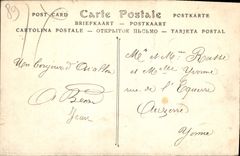 89
POST CARD Carte Postale POSTKARTE
BRIEFKAART — POSTKAART
CARTOLINA POSTALE — ОТКРЫТОЕ ПИСЬМО — TARJETA POSTAL
Un bonjour d'Avallon
Mr et Mme
et Melle Yvonne
rue de l'Equerre
Auxerre
Yonne